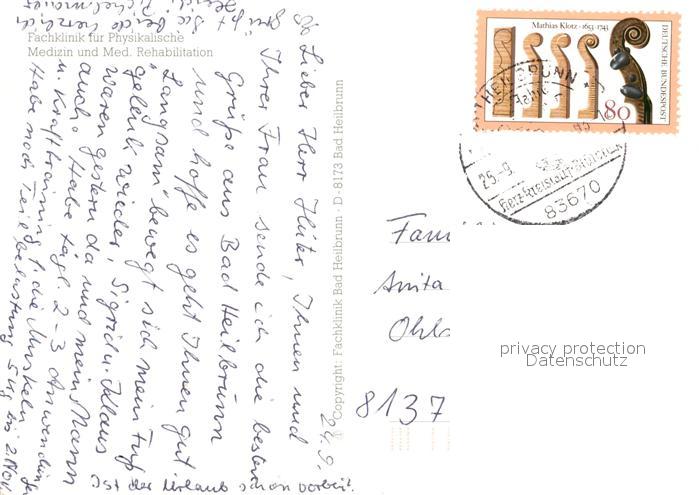 Fachklinik für Physikalische
Medizin und Med. Rehabilitation
24.9.
Lieber Herr Hüter, Ihnen und
Ihrer Frau sende ich die besten
Grüße aus Bad Heilbrunn
und hoffe es geht Ihnen gut.
"Langsam" bewegt sich mein Fuß
gelenk wieder, Sigrid u. Klaus
waren gestern da und mein Mann
auch. Habe tägl. 2-3 Anwendungen
u. Krafttraining f. die Muskeln
Habe noch Teilbelastung 5 kg bis 2. Nov.
ist der Urlaub schon vorbei.
grüßt Sie beide herzlich
© Copyright: Fachklinik Bad Heilbrunn · D-8173 Bad Heilbrunn
Mathias Klotz · 1653-1743
DEUTSCHE BUNDESPOST
80
25.-9.
83670
Fami
Anita
8137
privacy protection
Datenschutz